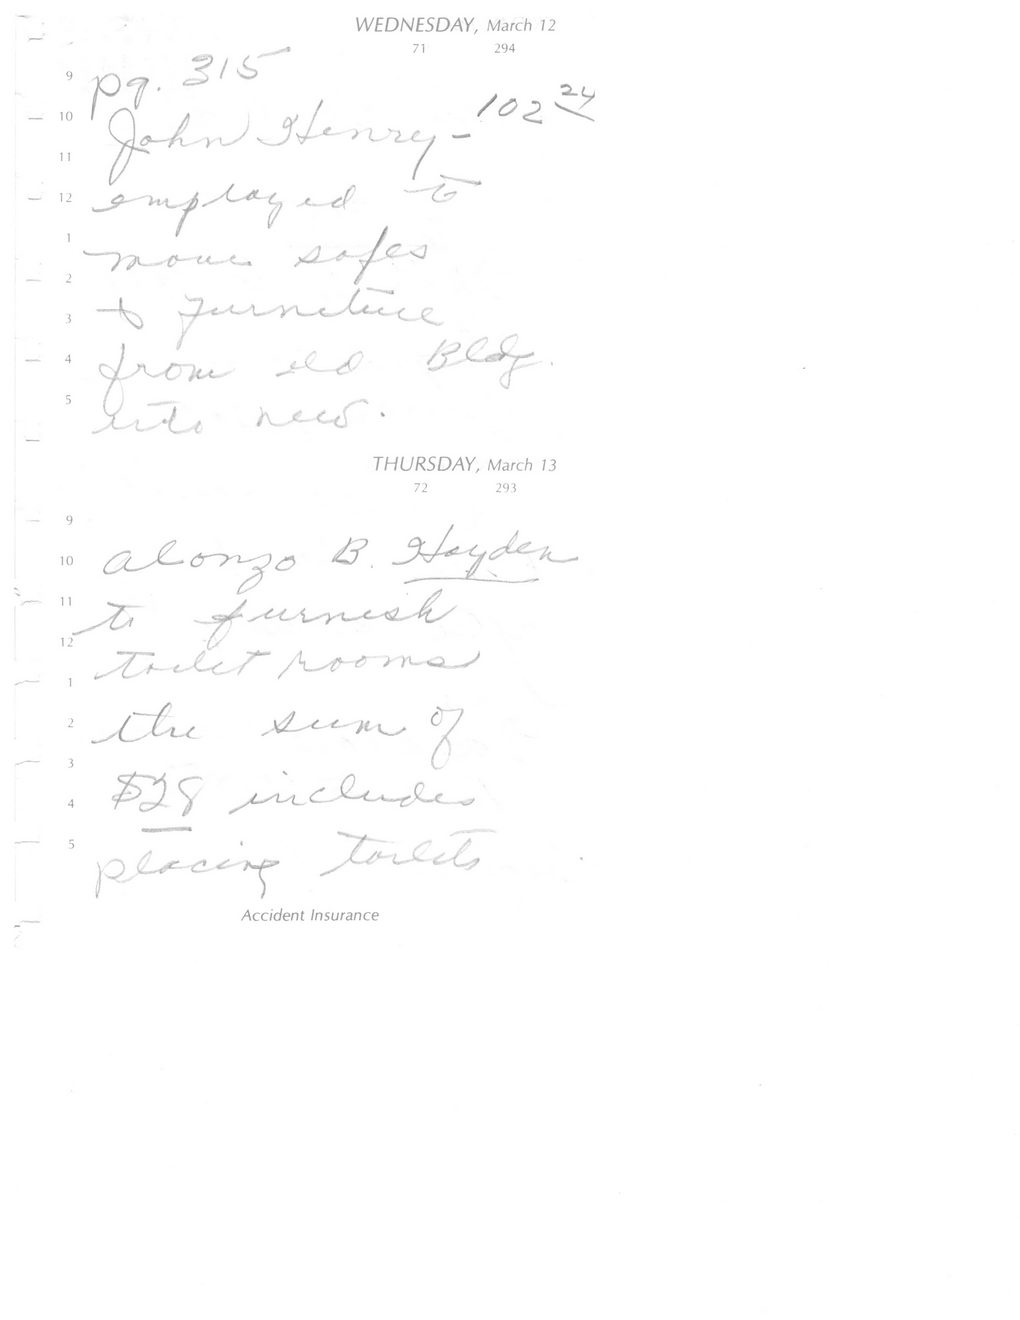 WEDNESDAY, March 12
71 294
9
pg. 315
10
John Henry - 102 24
11
12
employed to
1
move safes
2
3
& furniture
4
from old Bldg.
5
into new.
THURSDAY, March 13
72 293
9
10
Alonzo B. Hayden
11
to furnish
12
toilet rooms
1
2
the sum of
3
4
$28 includes
5
placing toilets
Accident Insurance